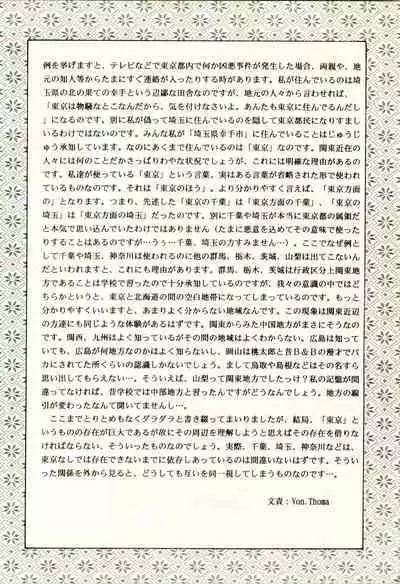 例を挙げますと、テレビなどで東京都内で何か凶悪事件が発生した場合、両親や、地
元の知人等からたまにすぐ連絡が入ったりする時があります。私が住んでいるのは埼
玉県の北の果ての幸手という辺鄙な田舎なのですが、地元の人々から言わせれば、
「東京は物騒なとこなんだから、気を付けなさいよ。あんたも東京に住んでるんだし
」になるのです。別に私が偽って埼玉に住んでいるのを隠して東京都民になりすまし
いるわけではないのです。みんな私が「埼玉県幸手市」に住んでいることはじゅうじ
ゅう承知しています。なのにあくまで住んでいるのは「東京」なのです。関東近在の
人々には何のことだかさっぱりわやな状況でしょうが、これには明確な理由があるの
です。私達が使っている「東京」という言葉、実はある言葉が省略された形で使われ
ているものなのです。それは「東京のほう」。より分かりやすく言えば、「東京方面
の」となります。つまり、先述した「東京の千葉」は「東京方面の千葉」、「東京の
埼玉」は「東京方面の埼玉」だったのです。別に千葉や埼玉が本当に東京都の属領だ
と本気で思い込んでいたわけではありません（たまに悪意を込めてその意味で使った
りすることはあるのですが…うぅ…千葉、埼玉の方すみません…）。ここでなぜ例とし
て千葉や埼玉、神奈川は使われるのに他の群馬、栃木、茨城、山梨は出てこないん
だといわれますと、これにも理由があります。群馬、栃木、茨城は行政区分上関東地
方であることは学校で習ったので十分承知しているのですが、我々の意識の中ではど
ちらかというと、東京と北海道の間の空白地帯になってしまっているのです。もっと
分かりやすくいいますと、あまりよく分からない地域なんです。この現象は関東近辺
の方達にも同じような体験があるはずです。関東からみた中国地方がまさにそうなの
です。関西、九州はよく知っているがその間の地域はよくわからない。広島は知って
いても、広島が何地方なのかはよく知らないし、岡山は桃太郎と昔Ｂ＆Ｂの漫才でバ
カにされてた所くらいの認識しかないでしょう。まして鳥取や島根などはその名すら
思い出してもらえない…。そういえば、山梨って関東地方でしたっけ？私の記憶が間
違ってなければ、昔学校では中部地方と習ったんですがどうなんでしょう。地方の線
引が変わったなんて聞いてませんし…。
ここまでとりとめもなくダラダラと書き綴ってまいりましたが、結局、「東京」と
いうものの存在が巨大であるが故にその周辺を理解しようと思えばその存在を借りな
ければならない、そういったものなのでしょう。実際、千葉、埼玉、神奈川などは、
東京なしでは存在できないまでに依存しあっているのは間違いないはずです。そうい
った関係を外から見ると、どうしても互いを同一視してしまうものなのです…。
文責：Von.Thoma